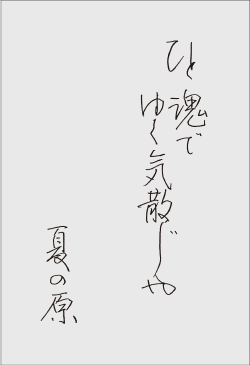 ひと魂で
ゆく気散じや
夏の原